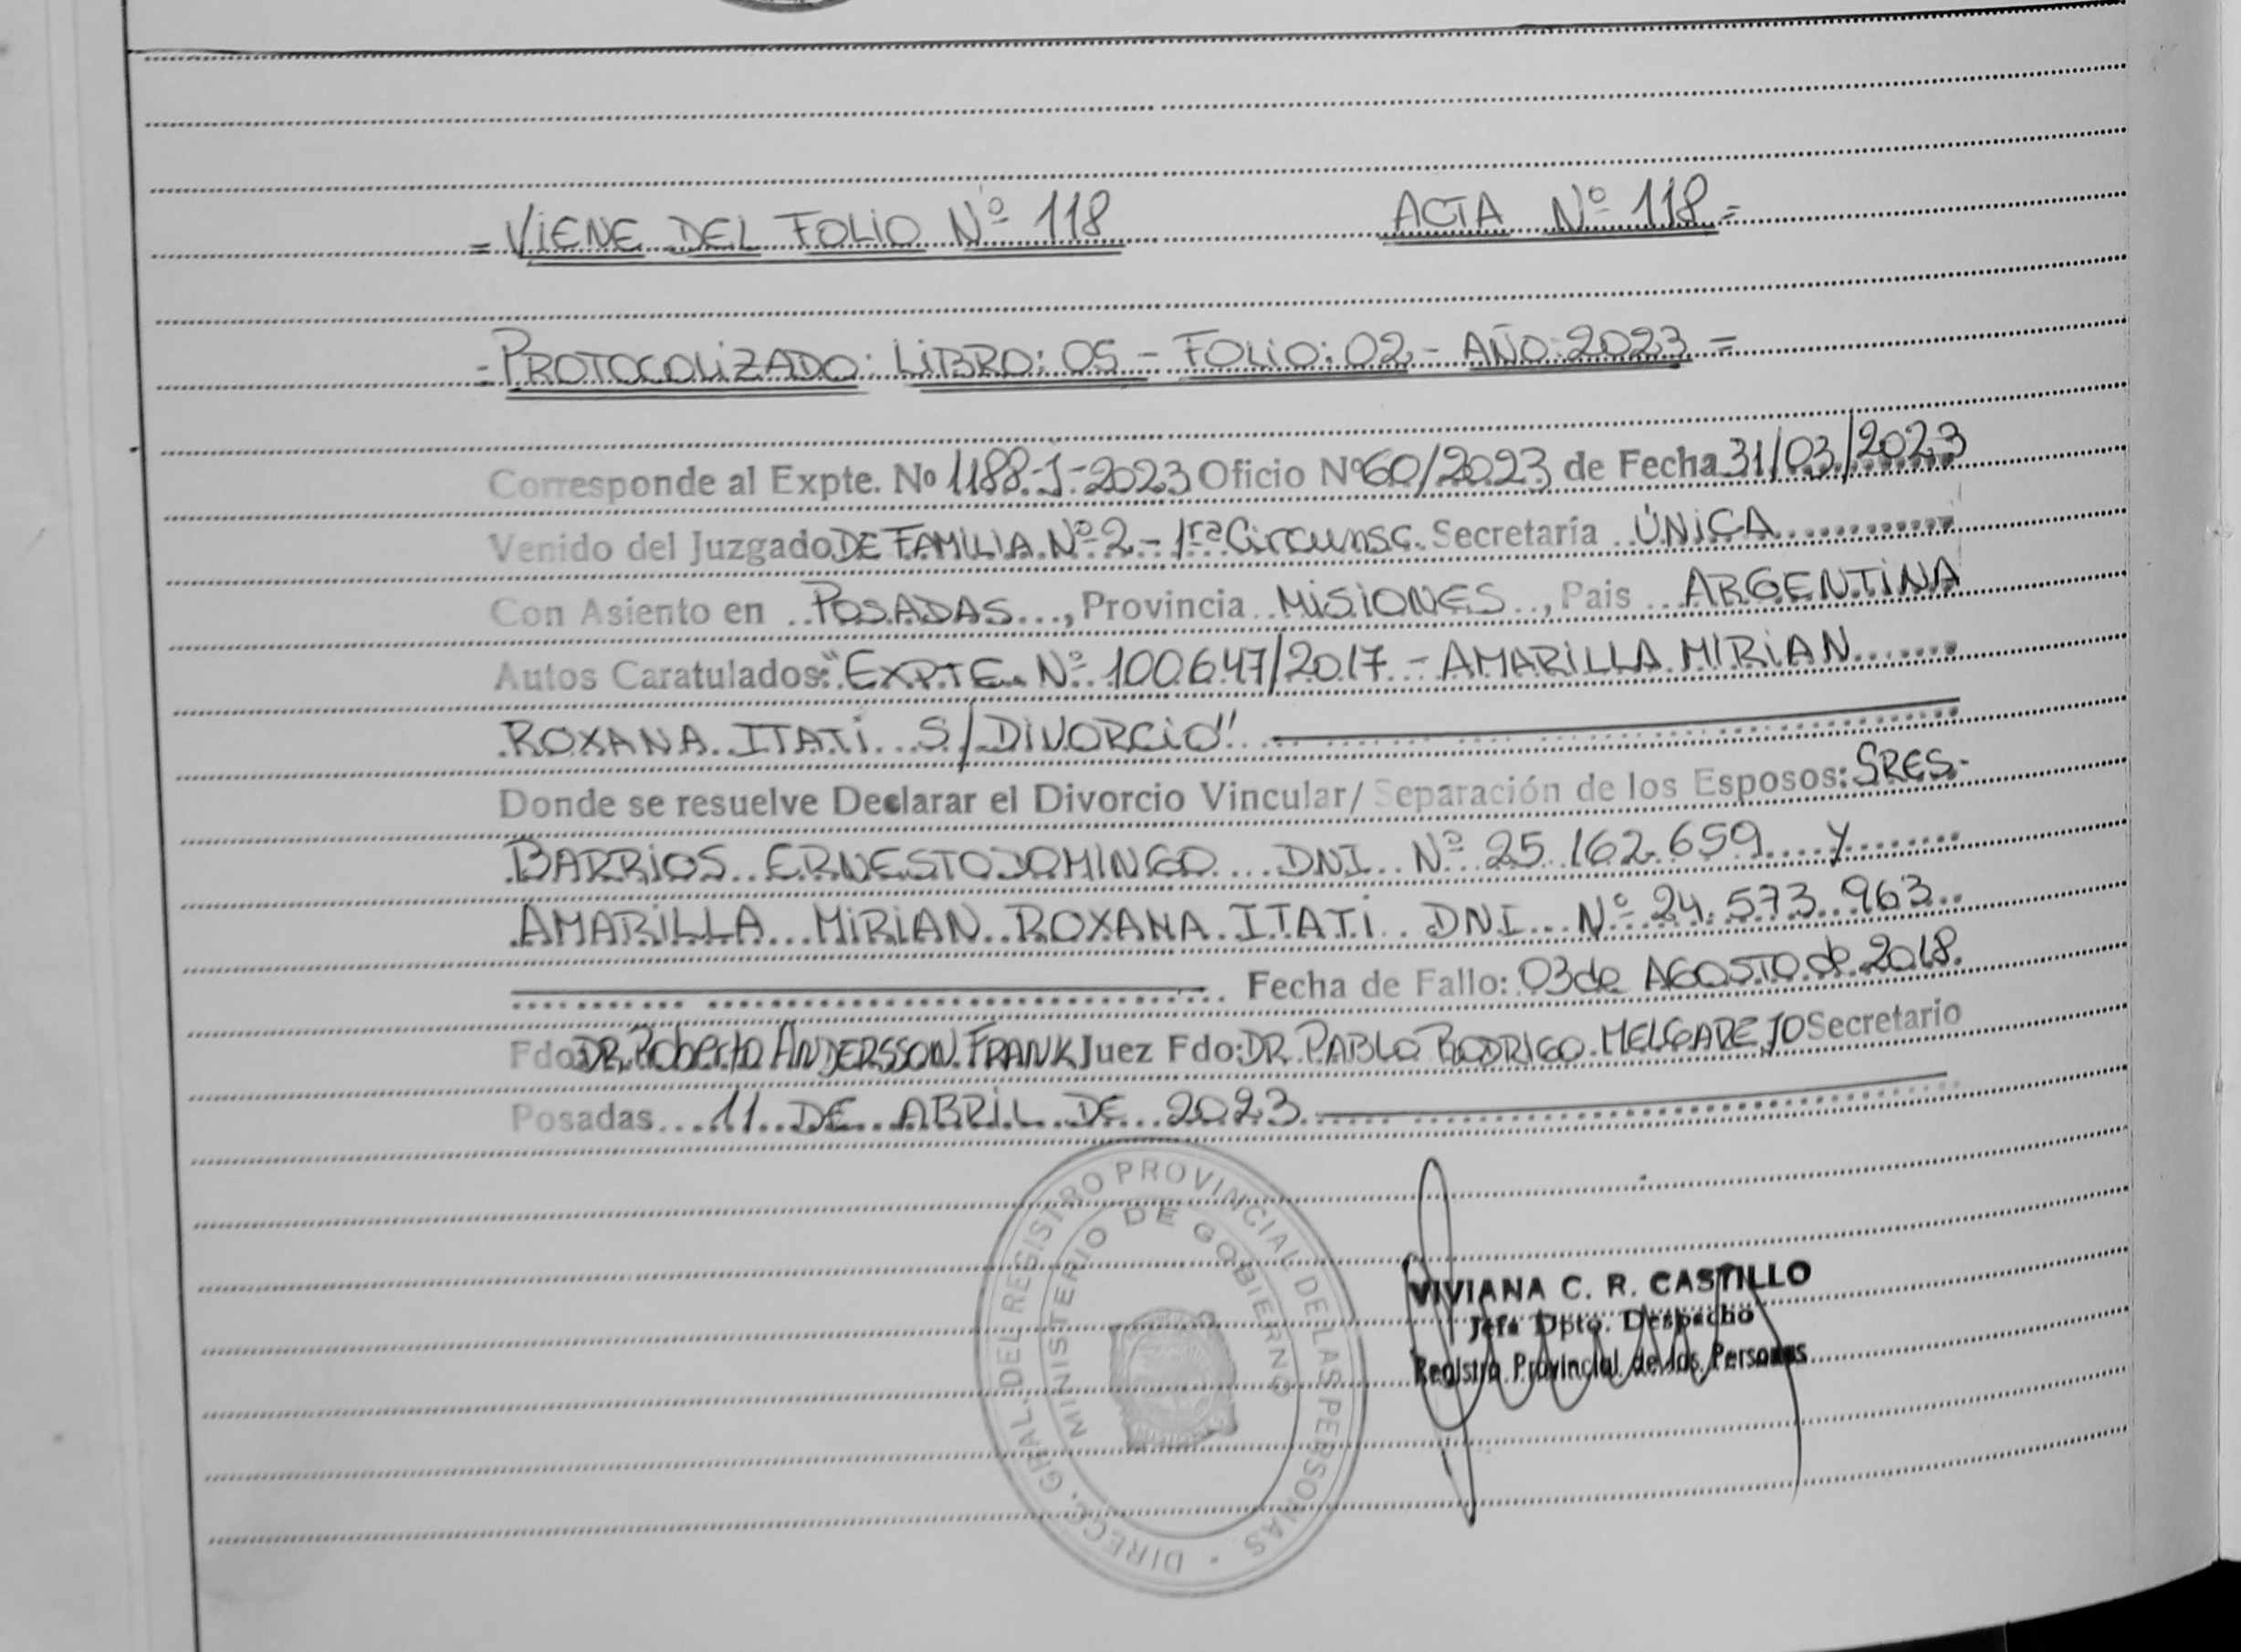 = VIENE DEL FOLIO Nº 118 ACTA Nº 118 =
- PROTOCOLIZADO: LIBRO: 05 - FOLIO: 02 - AÑO: 2023 =
Corresponde al Expte. Nº 1188-J-2023 Oficio Nº 60/2023 de Fecha 31/03/2023
Venido del Juzgado DE FAMILIA Nº 2 - 1ra Circunsc. Secretaría ÚNICA
Con Asiento en POSADAS, Provincia MISIONES, Pais ARGENTINA
Autos Caratulados: "EXPTE. Nº 100647/2017 - AMARILLA MIRIAN
ROXANA ITATI S/DIVORCIO"
Donde se resuelve Declarar el Divorcio Vincular/ Separación de los Esposos: SRES.
BARRIOS ERNESTO DOMINGO DNI Nº 25.162.659 y
AMARILLA MIRIAN ROXANA ITATI DNI Nº 24.573.963
Fecha de Fallo: 03 de AGOSTO de 2018.
Fdo: DR. Roberto ANDERSSON FRANK Juez Fdo: DR. PABLO RODRIGO MELGAREJO Secretario
Posadas 11 DE ABRIL DE 2023
DIRECC. GRAL. DEL REGISTRO PROVINCIAL DE LAS PERSONAS
MINISTERIO DE GOBIERNO
MISIONES
VIVIANA C. R. CASTILLO
Jefe Dpto. Despacho
Registro Provincial de las Personas